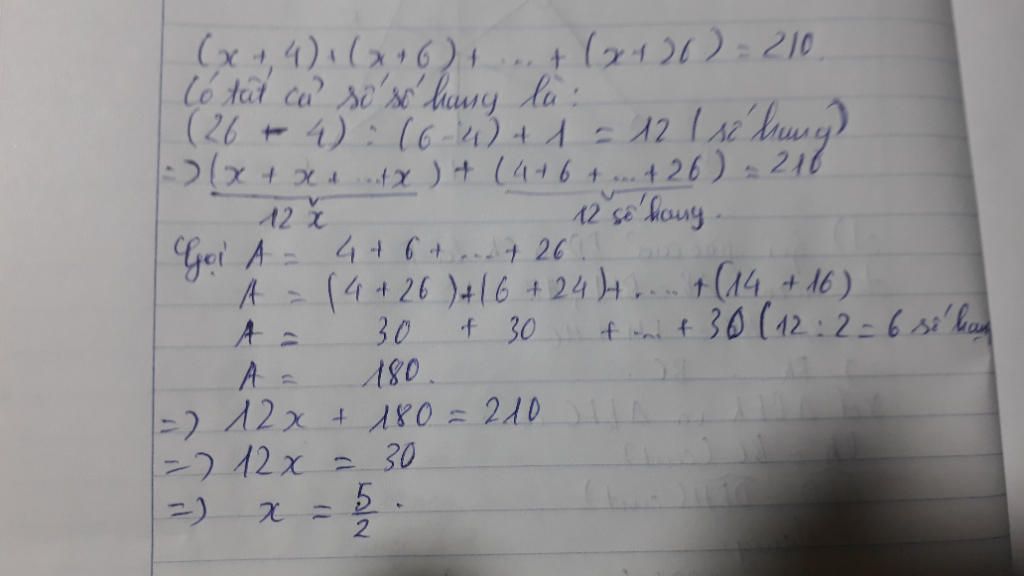 (x + 4) + (x + 6) + ... + (x + 26) = 210.
Có tất cả số số hạng là:
(26 - 4) : (6 - 4) + 1 = 12 (số hạng)
=> (x + x + ... + x) + (4 + 6 + ... + 26) = 210
12 x 12 số hạng.
Gọi A = 4 + 6 + ... + 26.
A = (4 + 26) + (6 + 24) + ... + (14 + 16)
A = 30 + 30 + ... + 30 (12 : 2 = 6 số hạng
A = 180.
=> 12x + 180 = 210
=> 12x = 30
=> x = 5/2.